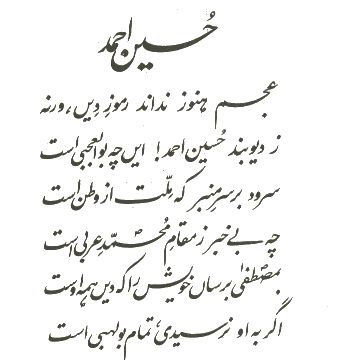 حُسین احمد
عجم ہنوز نداند رموزِ دیں، ورنہ
ز دیوبند حُسین احمد! ایں چہ بوالعجبی است
سرود بر سرِ منبر کہ مِلّت از وطن است
چہ بے خبر ز مقامِ محمّدِؐ عربی است
بمصطفیٰؐ برساں خویش را کہ دیں ہمہ اوست
اگر بہ او نرسیدی، تمام بولہبی است